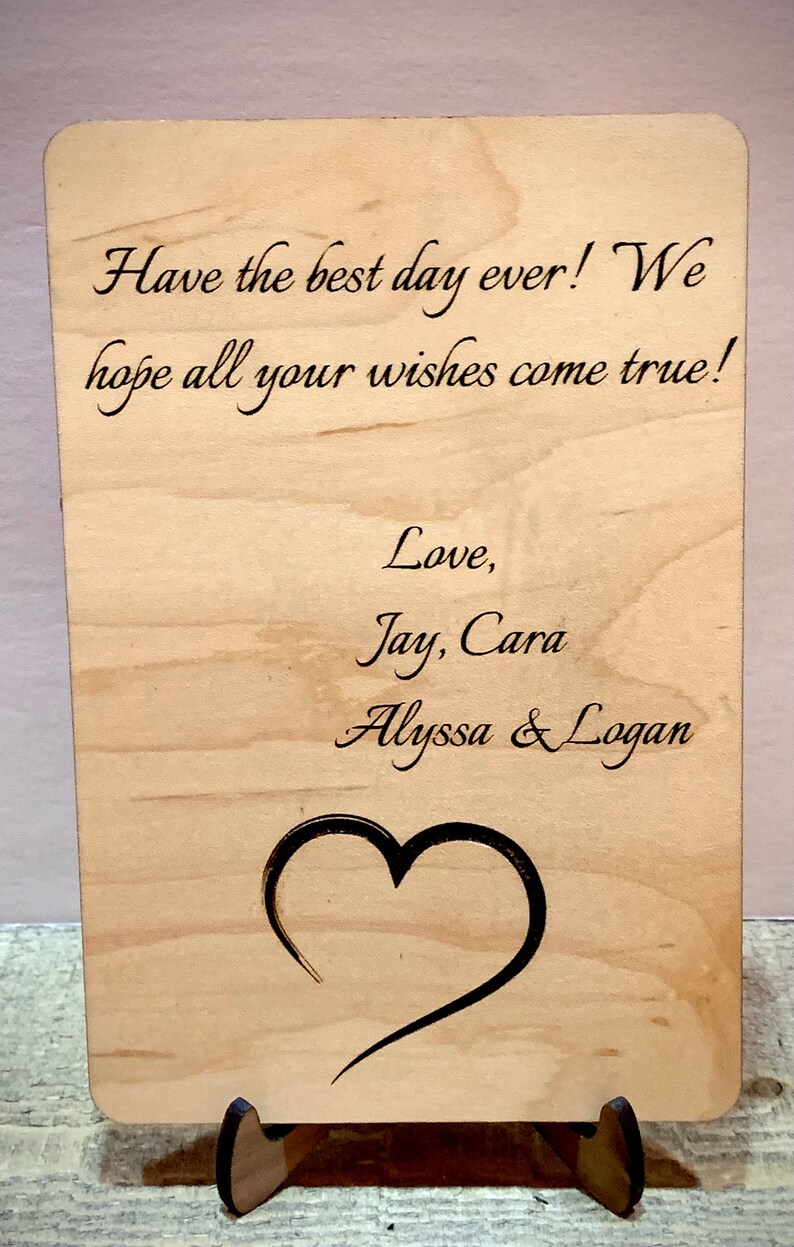 Have the best day ever! We
hope all your wishes come true!
Love,
Jay, Cara
Alyssa & Logan